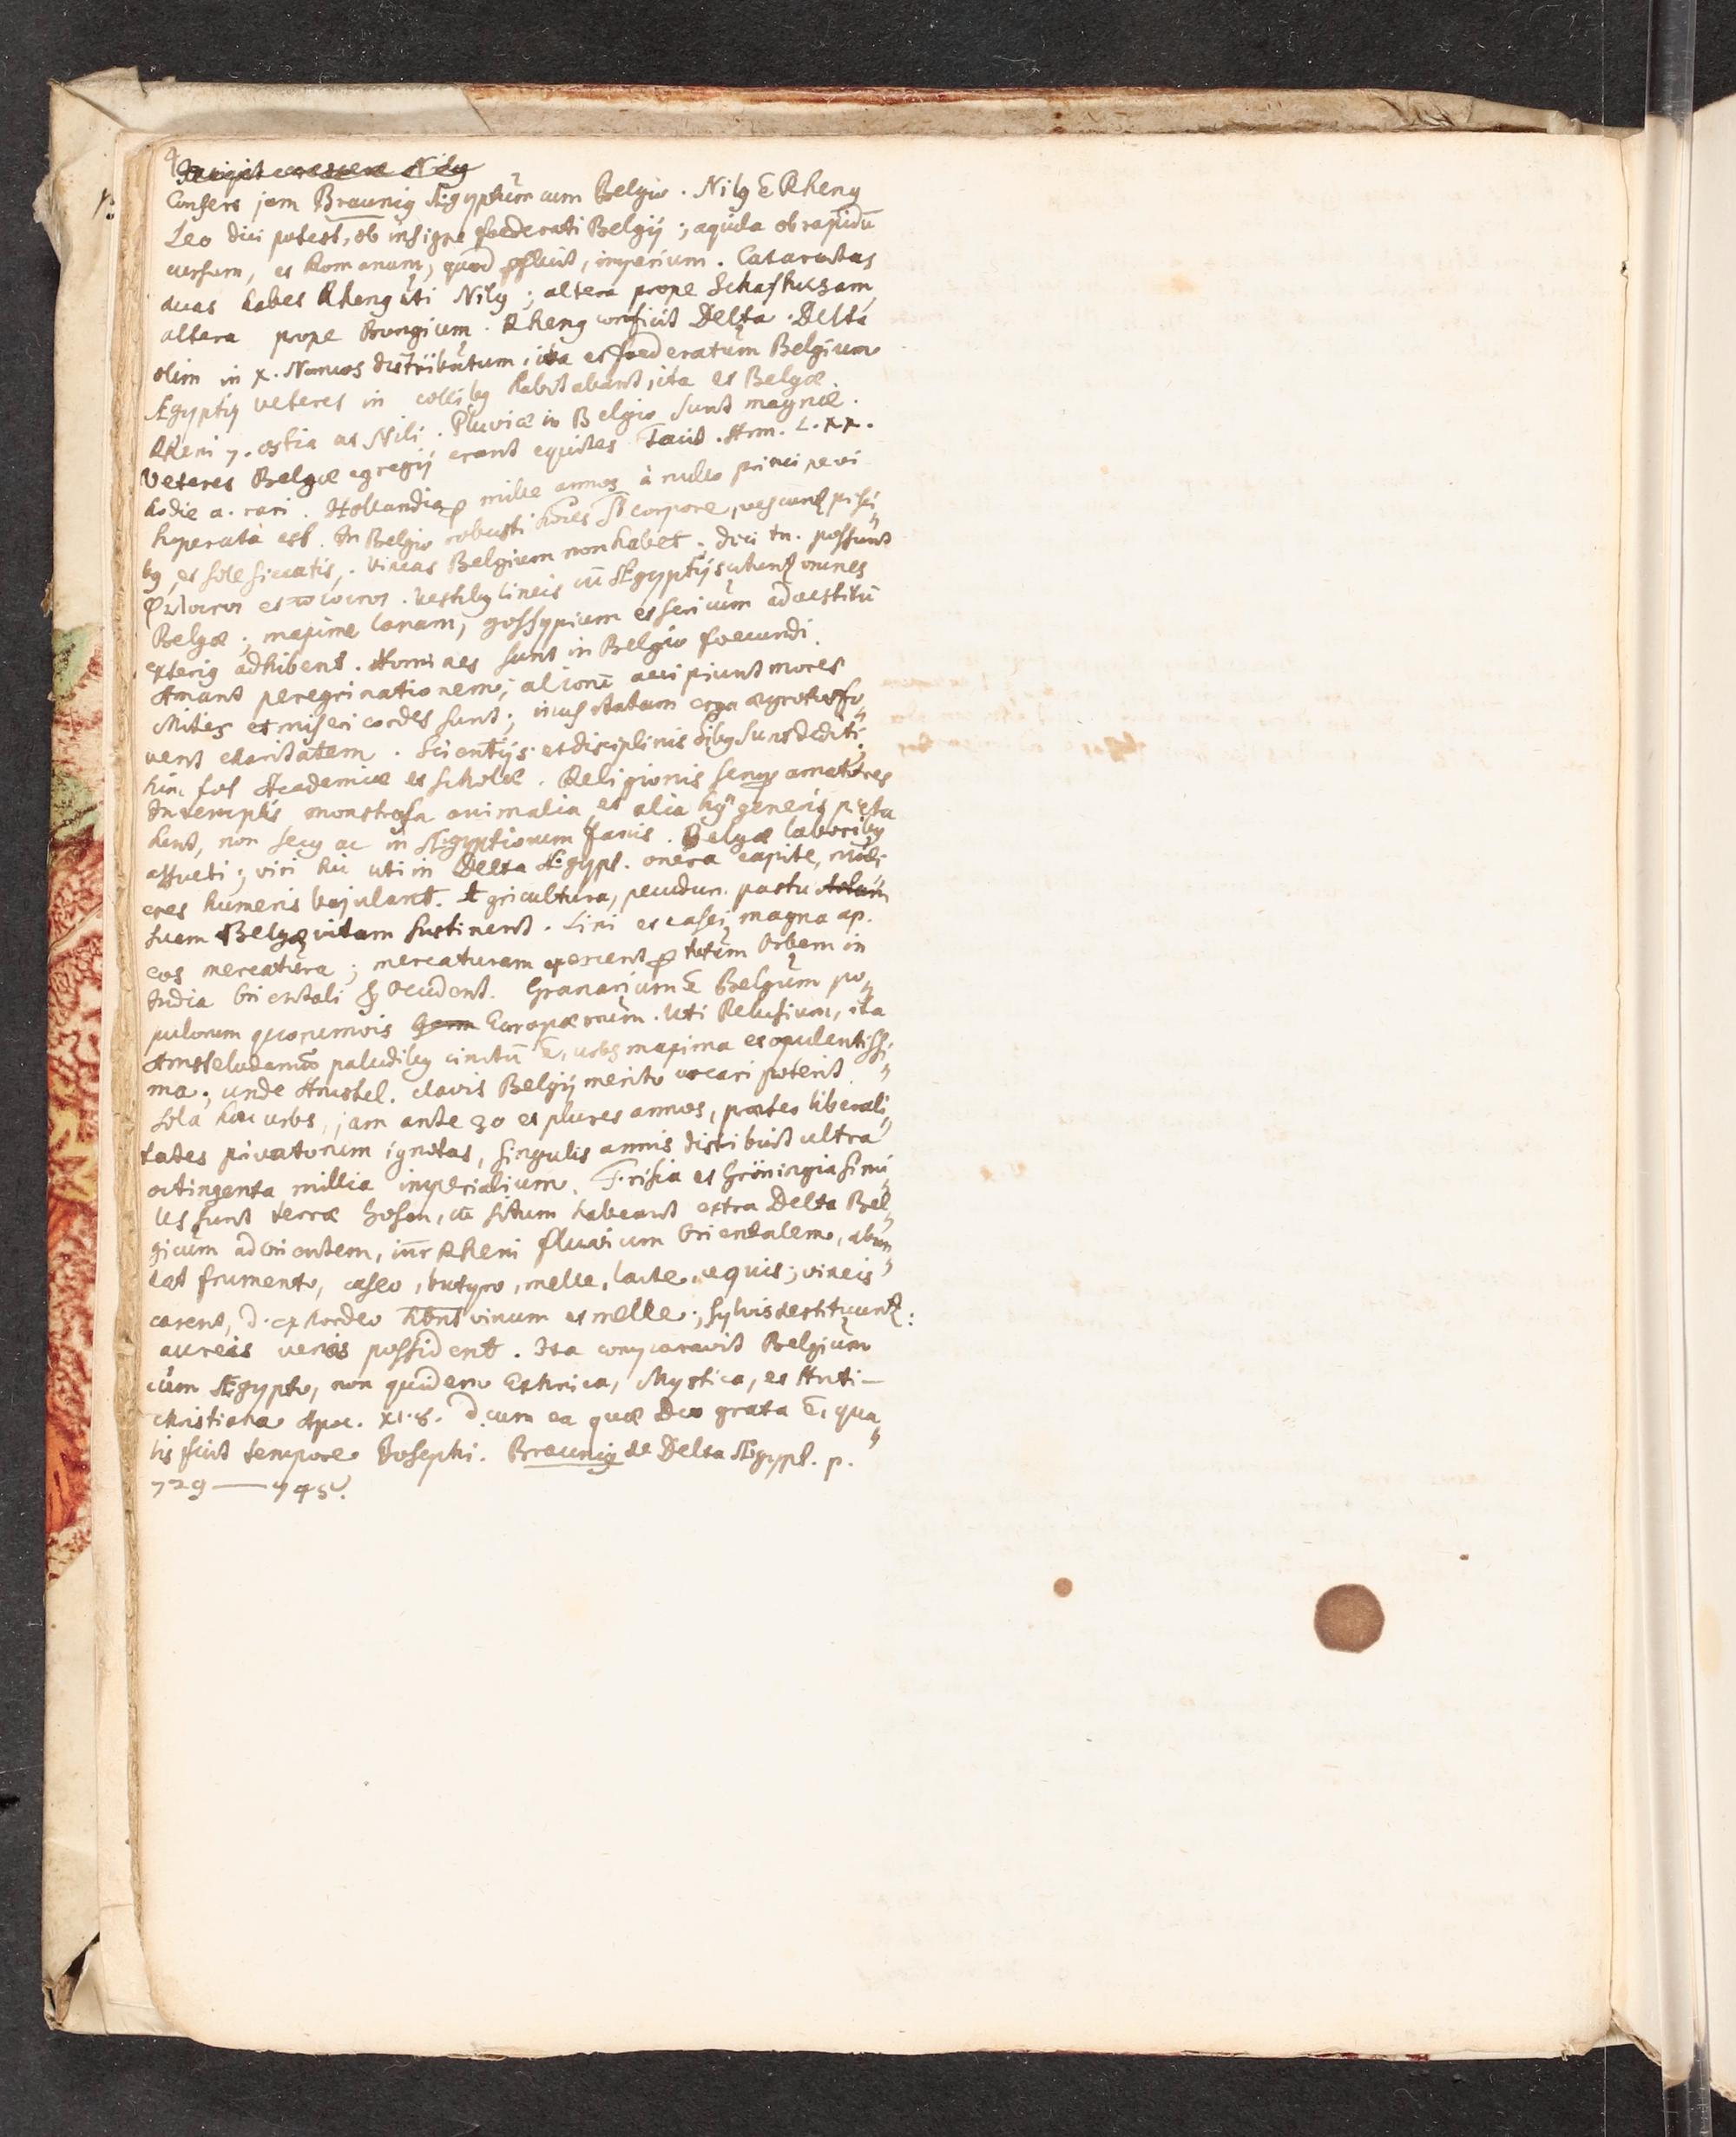 Incipit crescere Nilꝰ
Confert jam Braunig Ægyptum cum Belgio. Nilꝰ ē Rhenꝰ
Leo dici potest, ob insigne foederati Belgij; aquila ob rapidū
cursum, et Romanum, quod pfluit, imperium. Cataractas
duas habet Rhenꝰ uti Nilꝰ; altera prope Schafhuszam
altera prope Rhenꝰ conficit Delta. Delta
olim in X. Nomos distributum, ita et foederatum Belgium
Ægyptij veteres in collibꝰ habitabant, ita et Belgæ.
Rheni 7. ostia ut Nili. Pluviæ in Belgio sunt magnæ.
Veteres Belgæ egregij erant equites Tacit. L.
hodie a. rari. Hollandia p mille annos à nullo principe vi„
superata est. In Belgio robusti hōies st corpore, vescunt̃ pisci„
bꝰ, et sole siccatis. Vineas Belgium non habet; dici tn. possunt
et . Vestibꝰ lineis cū Ægyptijs utunt̃ omnes
Belgæ; maxime lanam, gossypium et sericum ad vestitū
exteriꝰ adhibent. Homines sunt in Belgio foecundi.
Amant peregrinationem; aliorū accipiunt mores
Mites et misericordes sunt; inusitatam erga ægrotos fo„
vent charitatem. Scientijs et disciplinis sibꝰ sunt dediti.
hinc tot Academiæ et scholæ. Religionis semp amatores
In templis monstrosa animalia et alia hꝰ generis picta
hent, non secꝰ ac in Ægyptiorum fanis. Belgæ laboribꝰ
assueti; viri hic uti in Delta Ægypt. onera capite, muli„
eres humeris bajulant. Agricultura, pecudum pastu
suem Belgæ vitam sustinent. Lini et casei magna ap.
eos mercatura; mercaturam exercent p totum Orbem in
India Orientali & Occident. Granarium ē Belgium po„
pulorum quorumvis Europæorum. Uti Pelusium, ita
Amstelodamum paludibꝰ cinctū ē, urbs maxima et opulentissi„
ma; unde Amstel. clavis Belgij merito vocari poterit.
Sola hæc urbs, jam ante 30 et plures annos, præter liberali„
tates privatorum ignotas, singulis annis distribuit ultra
octingenta millia imperialium. Frisia et Gröningia simi„
les sunt terræ Gosen, cū situm habeant extra Delta Bel„
gicum ad orientem, int̃ Rheni fluvium Orientalem, abun„
dat frumento, caseo, butyro, melle, lacte, equis; vineis
carent, d. ex hordeo hbnt vinum et melle; sylvis destituunt̃:
aureis venis possident. Ita comparavit Belgium
cum Ægypto, non quidem Ethnica, Mystica, et Anti-
christiana Apoc. XI. 8. d. cum ea quæ Deo grata ē, qua„
lis fuit tempore Josephi. Braunig de Delta Ægypt. p.
729 — 745.